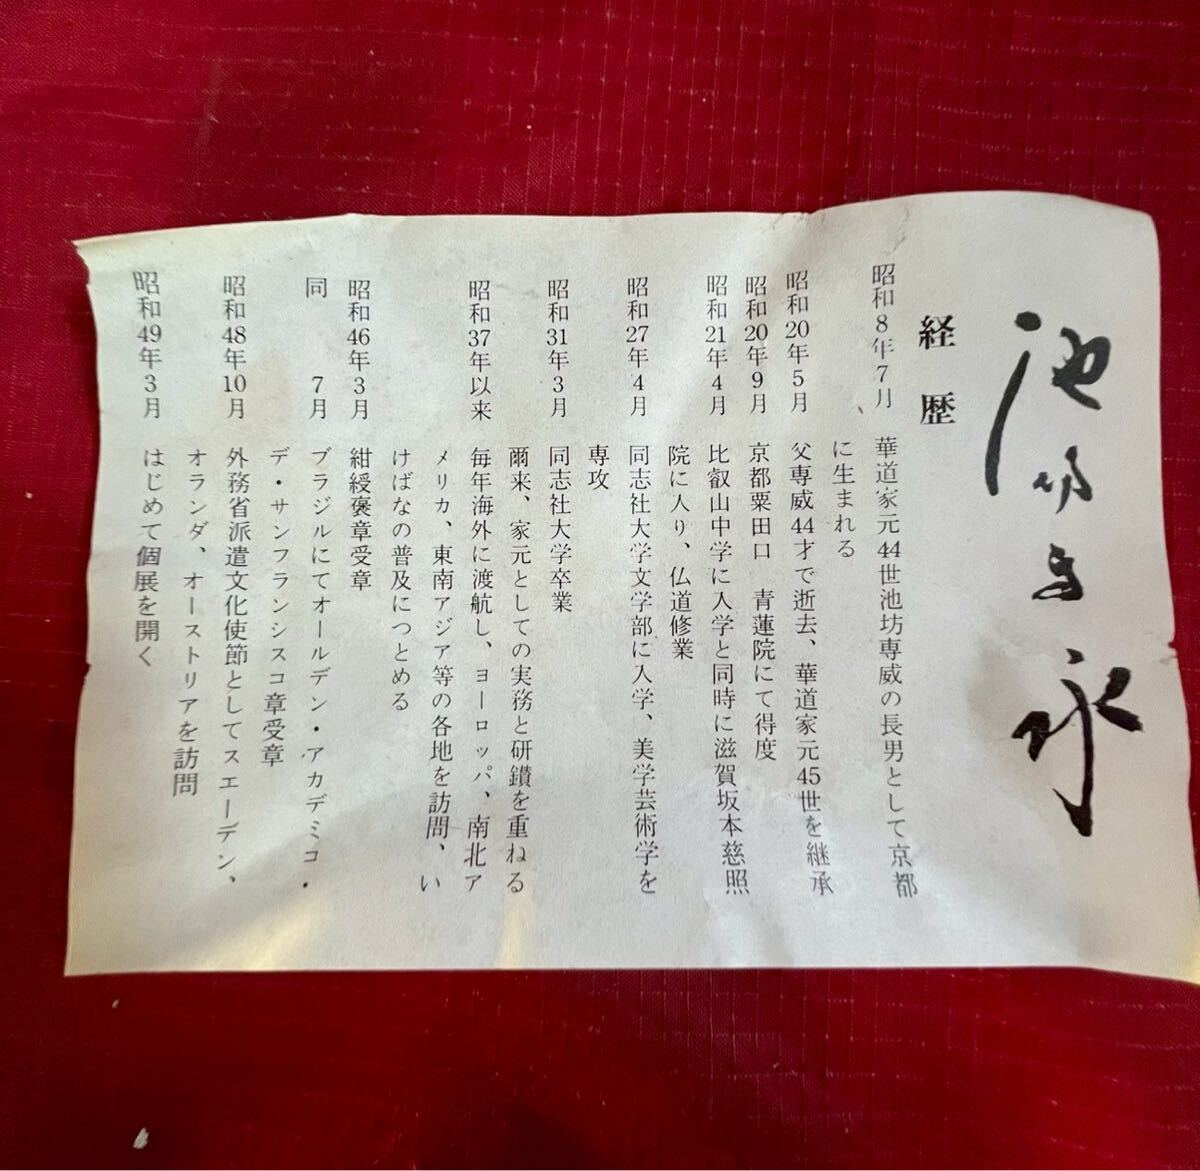 池坊専永
経歴
昭和8年7月 華道家元44世池坊専威の長男として京都
に生まれる
昭和20年5月 父専威44才で逝去、華道家元45世を継承
昭和20年9月 京都粟田口 青蓮院にて得度
昭和21年4月 比叡山中学に入学と同時に滋賀坂本慈照
院に入り、仏道修業
昭和27年4月 同志社大学文学部に入学、美学芸術学を
専攻
昭和31年3月 同志社大学卒業
爾来、家元としての実務と研鑚を重ねる
昭和37年以来 毎年海外に渡航し、ヨーロッパ、南北ア
メリカ、東南アジア等の各地を訪問、い
けばなの普及につとめる
昭和46年3月 紺綬褒章受章
同 7月 ブラジルにてオールデン・アカデミコ・
デ・サンフランシスコ章受章
昭和48年10月 外務省派遣文化使節としてスエーデン、
オランダ、オーストリアを訪問
昭和49年3月 はじめて個展を開く